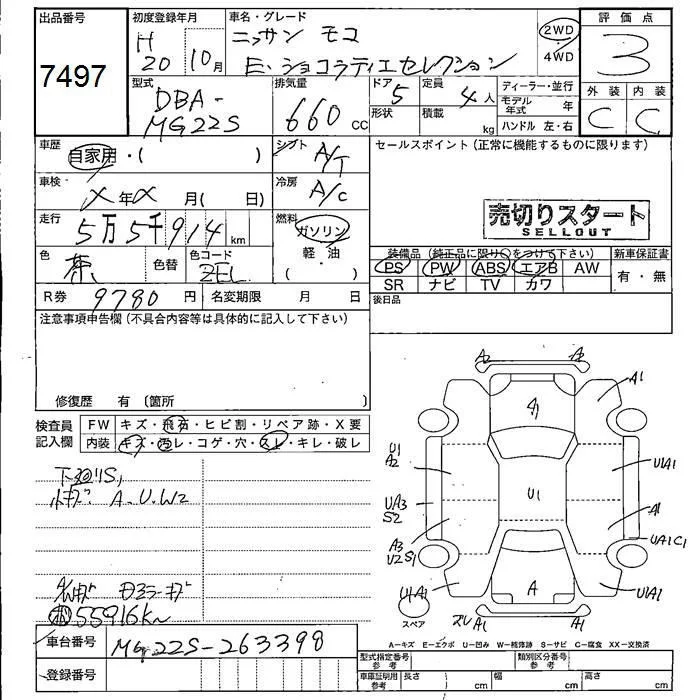 出品番号
7497
初度登録年月
H
20 10月
車名・グレード
ニッサン モコ
E・ショコラティエセレクション
2WD
4WD
評価点
3
外装 内装
C C
型式
DBA-
MG22S
排気量
660 cc
ドア 5
形状
定員 4人
積載 kg
ディーラー・並行
モデル年式 年
ハンドル 左・右
車歴
自家用・( )
シフト A/T
セールスポイント(正常に機能するものに限ります)
車検
年 月( 日)
冷房 A/C
売切りスタート
SELLOUT
走行
5万5千914km
燃料
ガソリン
軽・油
・( )
色
茶
色替
色コード
ZEL
装備品(純正品に限り○をつけて下さい)
PS PW ABS エアB AW
SR ナビ TV カワ
新車保証書
有・無
R券 9780円
名変期限 月 日
後日品
注意事項申告欄(不具合内容等は具体的に記入して下さい)
修復歴 有 〔箇所
検査員記入欄
FW キズ・飛石・ヒビ割・リペア跡・X要
内装 キズ・汚レ・コゲ・穴・スレ・キレ・破レ
下廻りS1
A.U.W2
55916km
車台番号 MG22S-263398
登録番号
A2 A2
A1
A1
U1
A2
U1
U1A1
UA3
S2
A1
UA1C1
A3
U2S1
U1A1
A
U1A1
スペア
スレA1 A1
A-キズ E-エクボ U-凹み W-補修跡 S-サビ C-腐食 XX-交換済
型式指定番号
参考
類別区分番号
参考
車庫証明用
参考
長さ cm
幅 cm
高さ cm